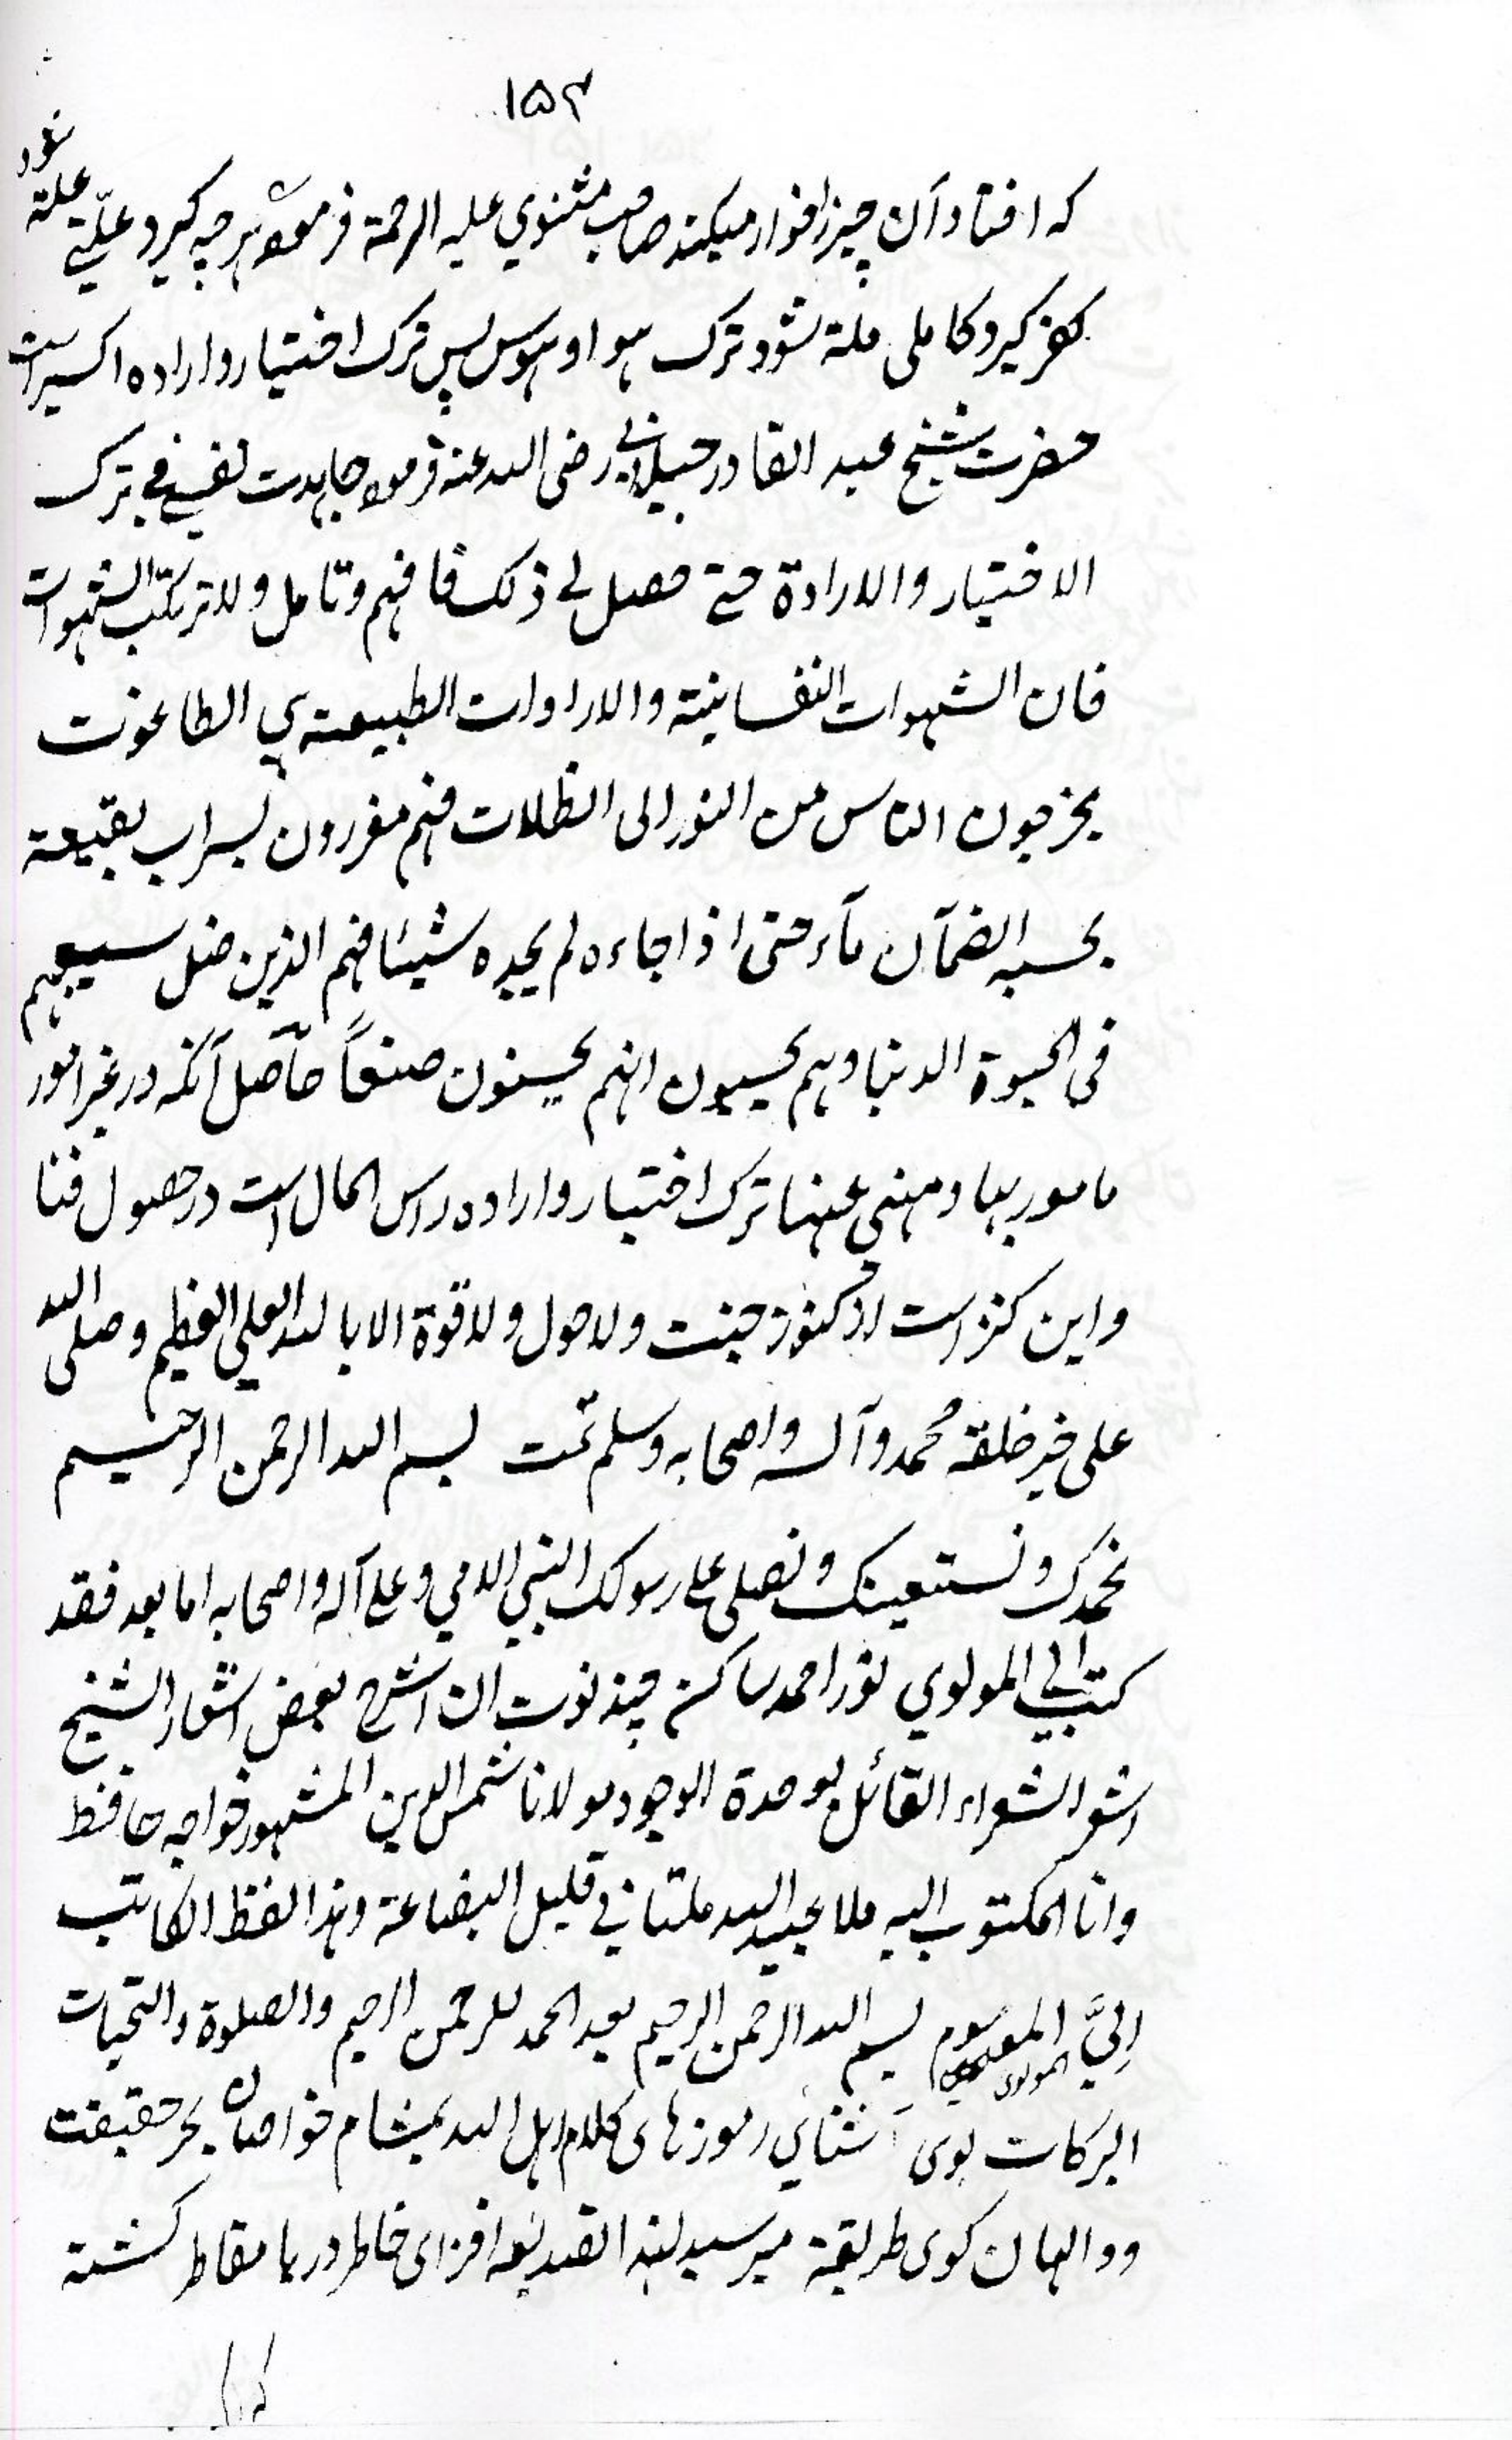 ۱۵۴
که افتاد آن چیز را خوار میکند صاحب مثنوي علیه الرحمة فرموده هرچه گیرد علّتے علة شود
کفر گیرد کاملی ملة شود ترک هوا و هوس پس ترک اختیار و اراده اکسیر است
حضرت شیخ عبد القادر جیلانی رضی الله عنه فرموده جاهدت نفسے فے ترک
الاختیار والارادة حتے حصل لے ذلک فافهم وتامل ولا ترتکب الشهوات
فان الشهوات النفسانیة والارادات الطبیعة هي الطاغوت
یخرجون الناس من النور الی الظلات فهم مغررون بسراب بقیعة
یحسبه الضمآن مآء حتی اذا جاءه لم یجده شیئا فهم الذین ضل سیعهم
فی الحیوة الدنیا وهم یحسبون انهم یحسنون صنعاً حاصل آنکه در غیر امور
مامور بها و منهی عنها ترک اختیار و اراده راس المال است در حصول فنا
و این کنز است از کنوز جنت ولا حول ولا قوة الا بالله العلي العظیم وصلی الله
علی خیر خلقه محمد وآله واصحابه وسلم تمت بسم الله الرحمن الرحیم
نحمدک ونستعینک ونصلی علے رسولک النبي الامي وعلے آله واصحابه اما بعد فقد
کتب الي المولوي نور احمد ساکن چند نوت ان اشرح بعض اشعار الشیخ
اشعر الشعراء القائل بوحدة الوجود مولانا شمس الدین المشهور خواجه حافظ
وانا المکتوب الیه ملا عبید الله ملتانی قلیل البضاعة وهذا لفظ الکاتب
اِليَّ الموسوم بسم الله الرحمن الرحیم بعد الحمد للرحمن الرحیم والصلوة والتحیات
المولوی
البرکات بوی آشنائي رموزهای کلام اهل الله بمشام خواصان بحر حقیقت
و والهان کوی طریقة میرسد لهذا افزای خاطر دریا مقاطر گشته